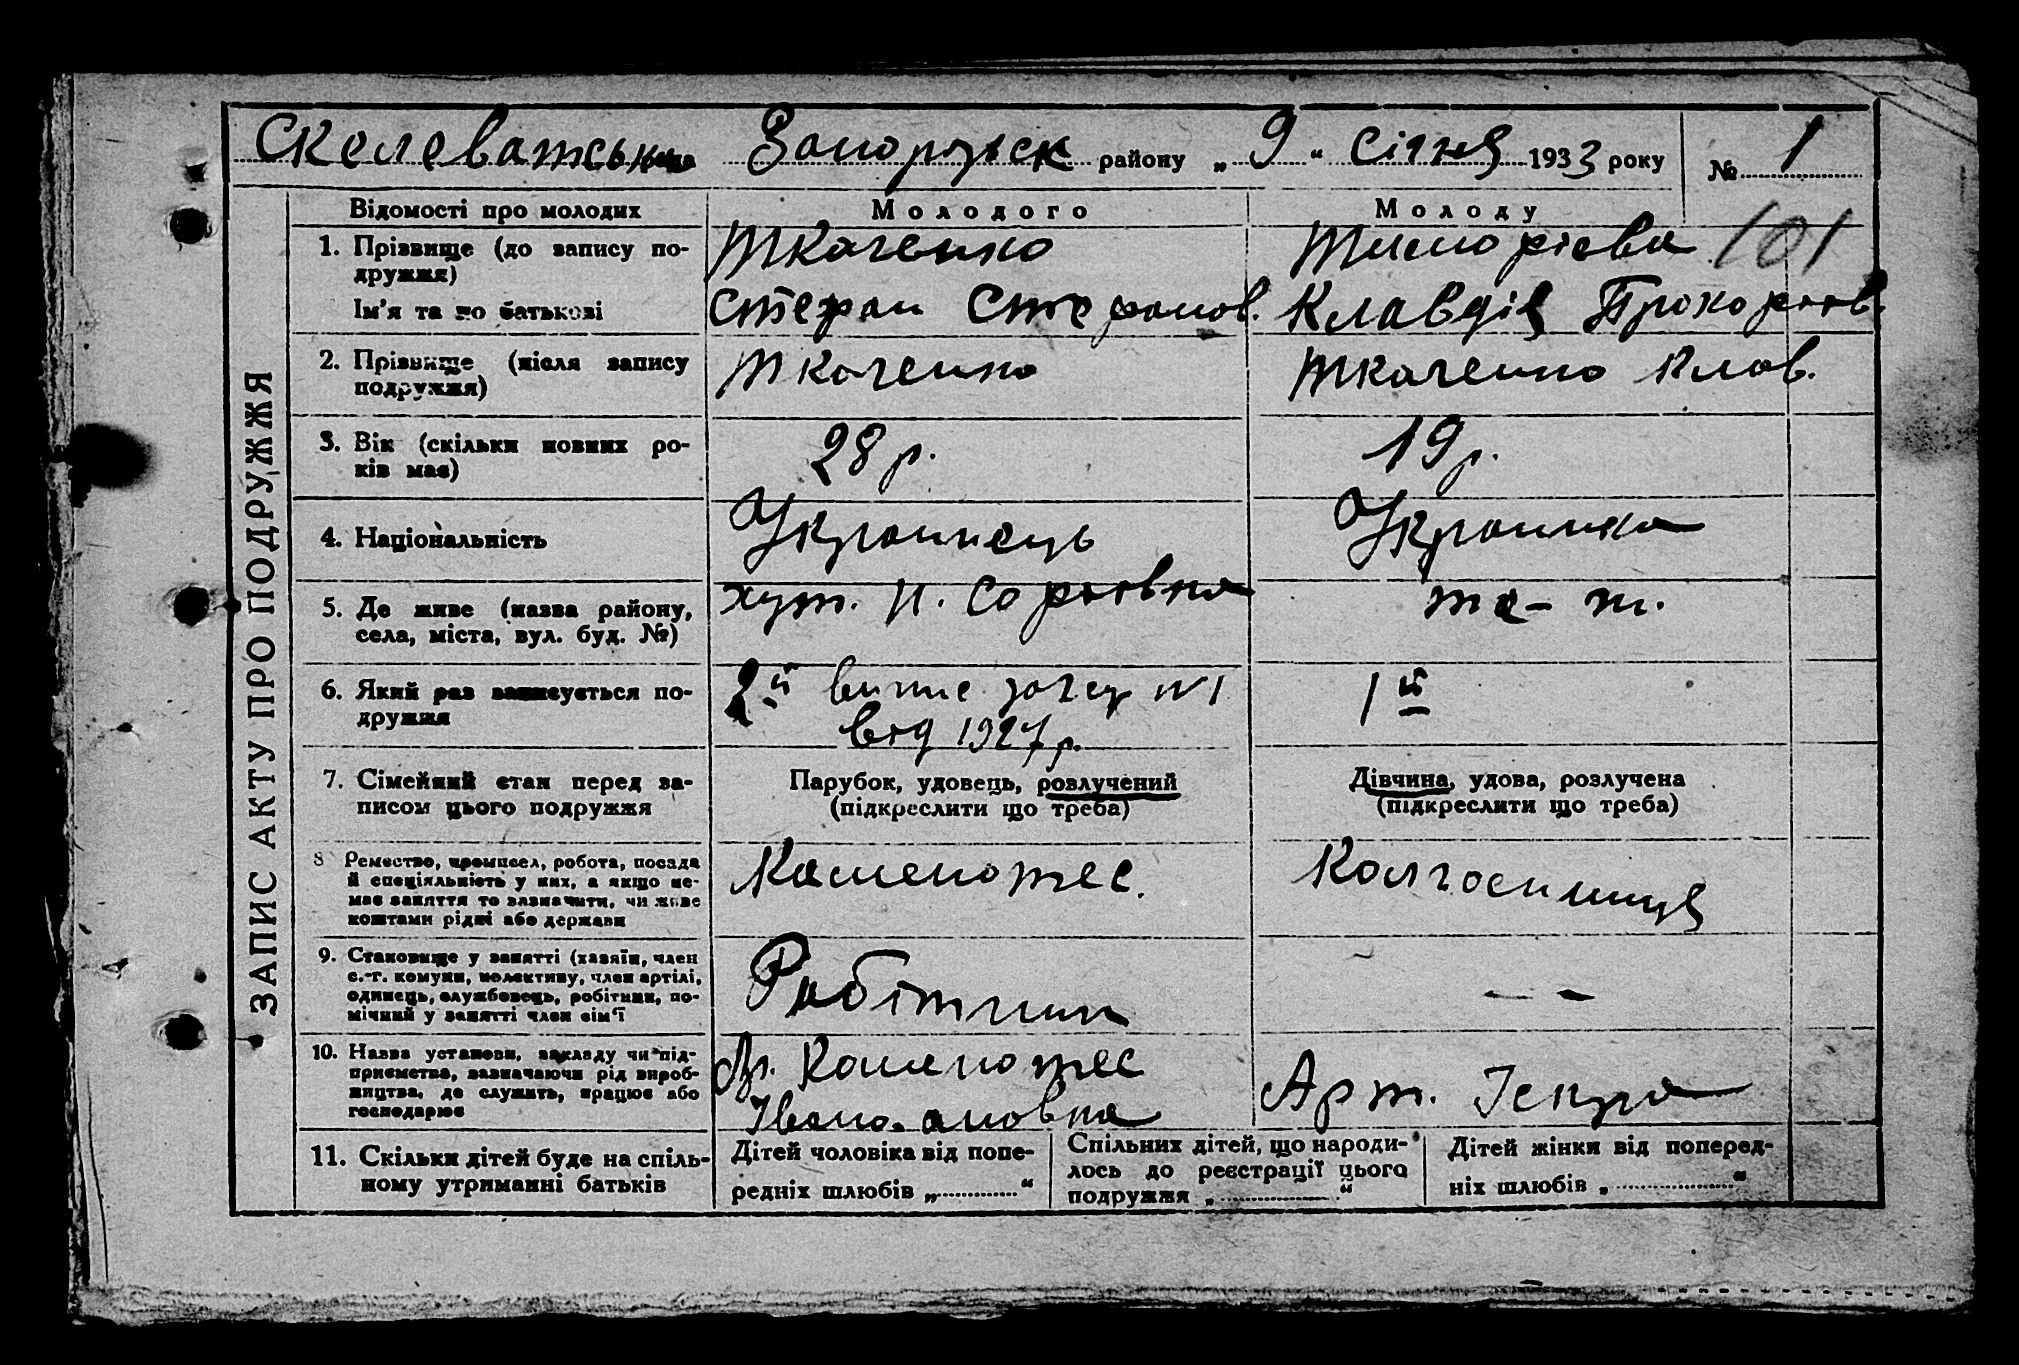 Скелеватська Запорізьк району „ 9 “ січня 1933 року № 1
101
ЗАПИС АКТУ ПРО ПОДРУЖЖЯ
Відомості про молодих Молодого Молоду
1. Прізвище (до запису по-
дружжя) Ткаченко
Ім'я та по батькові Стефан Стефанов. Клавдія Прокофіїв.
2. Прізвище (після запису
подружжя) Ткаченко Ткаченко Клав.
3. Вік (скільки повних ро-
ків має) 28 р. 19 р.
4. Національність Українець Українка
5. Де живе (назва району,
села, міста, вул. буд. №) хут. те-ж.
6. Який раз записується по-
дружжя 2й №1 1й
від 1927 р.
7. Сімейний стан перед за-
писом цього подружжя
Парубок, удовець, розлучений
(підкреслити що треба)
Дівчина, удова, розлучена
(підкреслити що треба)
8 Ремество, промисел, робота, посада
й спеціяльність у них, а якщо не-
має заняття то зазначити, чи живе
коштами рідні або держави
Каменотес.
Колгоспниця
9. Становище у занятті (хазяїн, член
с.-г. комуни, колективу, член артілі,
одинець, службовець, робітник, по-
мічний у занятті член сім'ї
Робітник
— —
10. Назва установи, закладу чи під-
приємства, зазначаючи рід вироб-
ництва, де служить, працює або
господарює
Каменотес
Арт. Іскра
11. Скільки дітей буде на спіль-
ному утриманні батьків
Дітей чоловіка від попе-
редніх шлюбів „ “
Спільних дітей, що народи-
лось до реєстрації цього
подружжя „ “
Дітей жінки від поперед-
ніх шлюбів „ “